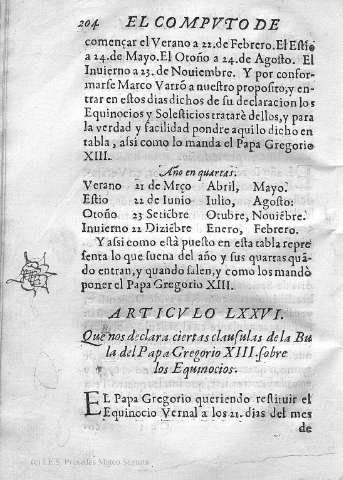 204 EL COMPVTO DE
començar el Verano a 22.de Febrero.El Estio
a 24.de Mayo.El Otoño a 24.de Agosto. El
Inuierno a 23.de Nouiembre. Y por confor-
marse Marco Varró a nuestro proposito,y en-
trar en estos dias dichos de su declaracion los
Equinocios y Solesticios tratarè dellos,y para
la verdad y facilidad pondre aqui lo dicho en
tabla , asi como lo manda el Papa Gregorio
XIII.
Año en quartas.
Verano 21 de Mrço Abril, Mayo.
Estio 22 de Iunio Iulio, Agosto:
Otoño 23 Setiẽbre Otubre, Nouiẽbre.
Inuierno 22 Diziẽbre Enero, Febrero.
Y asi como està puesto en esta tabla repre
senta lo que suena del año y sus quartas quã-
do entran,y quando salen,y como los mandò
poner el Papa Gregorio XIII.
ARTICVLO LXXVI.
Que nos declara ciertas clausulas de la Bu
la del Papa Gregorio XIII. sobre
los Equinocios.
EL Papa Gregorio queriendo restituir el
Equinocio Vernal a los 21. dias del mes
de
(c) I.E.S. Práxedes Mateo Sagasta